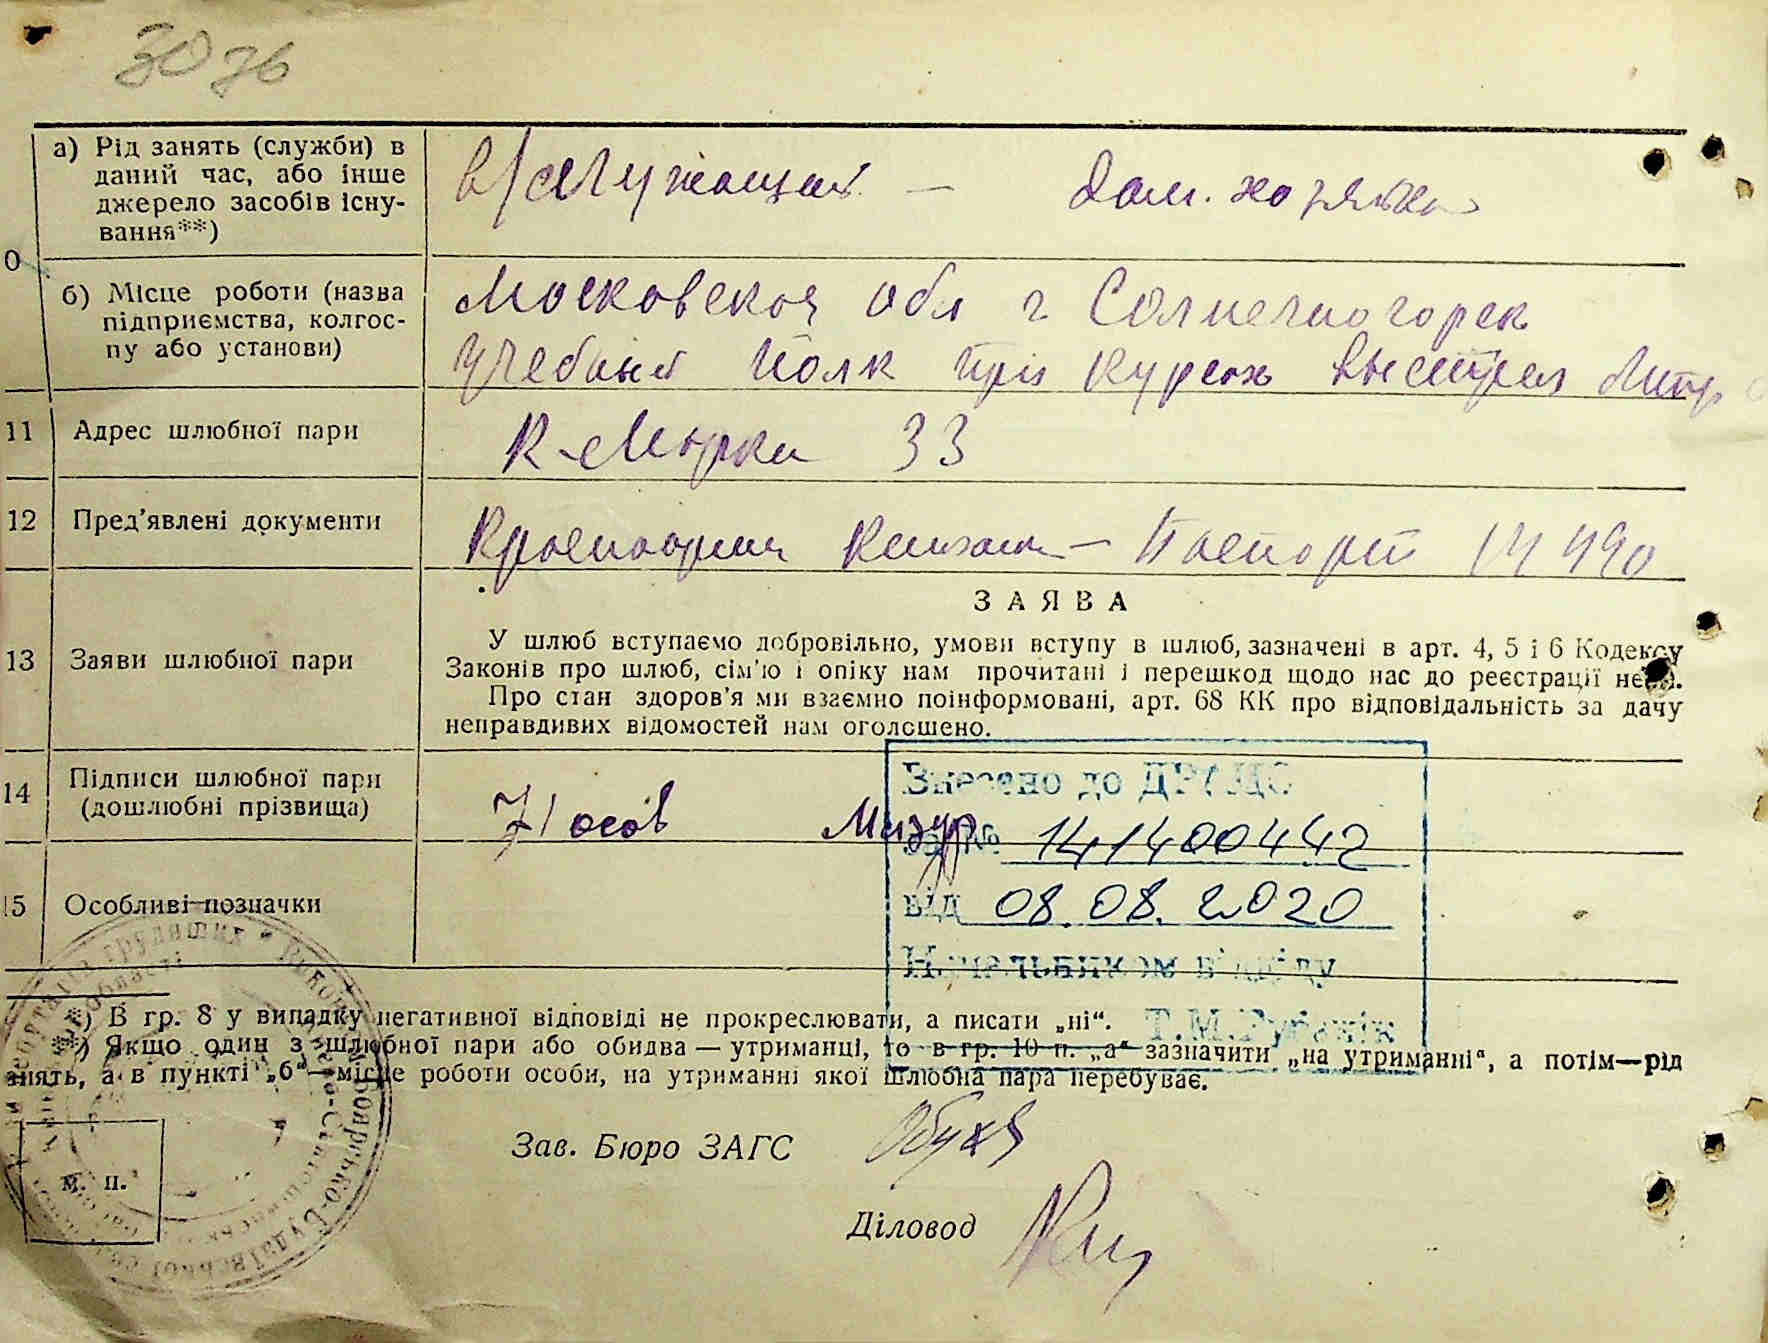 30 зб
а) Рід занять (служби) в
даний час, або інше
джерело засобів існу-
вання**)
в/служащий — дом. хозяйка
0
б) Місце роботи (назва
підприємства, колгос-
пу або установи)
Московская обл г Солнечногорск
Учебный полк при курсах Выстрел
11 Адрес шлюбної пари
К-Маркса 33
12 Пред'явлені документи
Красноарм книжка — Паспорт
13 Заяви шлюбної пари
ЗАЯВА
У шлюб вступаємо добровільно, умови вступу в шлюб, зазначені в арт. 4, 5 і 6 Кодексу
Законів про шлюб, сім'ю і опіку нам прочитані і перешкод щодо нас до реєстрації нема.
Про стан здоров'я ми взаємно поінформовані, арт. 68 КК про відповідальність за дачу
неправдивих відомостей нам оголошено.
14 Підписи шлюбної пари
(дошлюбні прізвища)
Носов Мизур
Внесено до ДРАЦС
за № 14/400442
від 08.08.2020
Начальником відділу
15 Особливі позначки
*) В гр. 8 у випадку негативної відповіді не прокреслювати, а писати „ні“.
**) Якщо один з шлюбної пари або обидва — утриманці, то в гр. 10 п. „а“ зазначити „на утриманні“, а потім—рід
занять, а в пункті „б“—місце роботи особи, на утриманні якої шлюбна пара перебуває.
Зав. Бюро ЗАГС
м. п.
Діловод